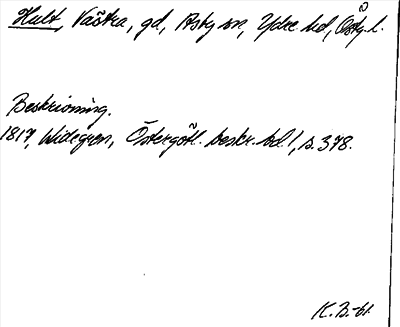 Hult, Västra, gd, Asby sn, Ydre hd, Östg. l.
Beskrivning.
1817, Widegren, Östergötl. beskr. bd. 1, s. 378.
K. B.-61